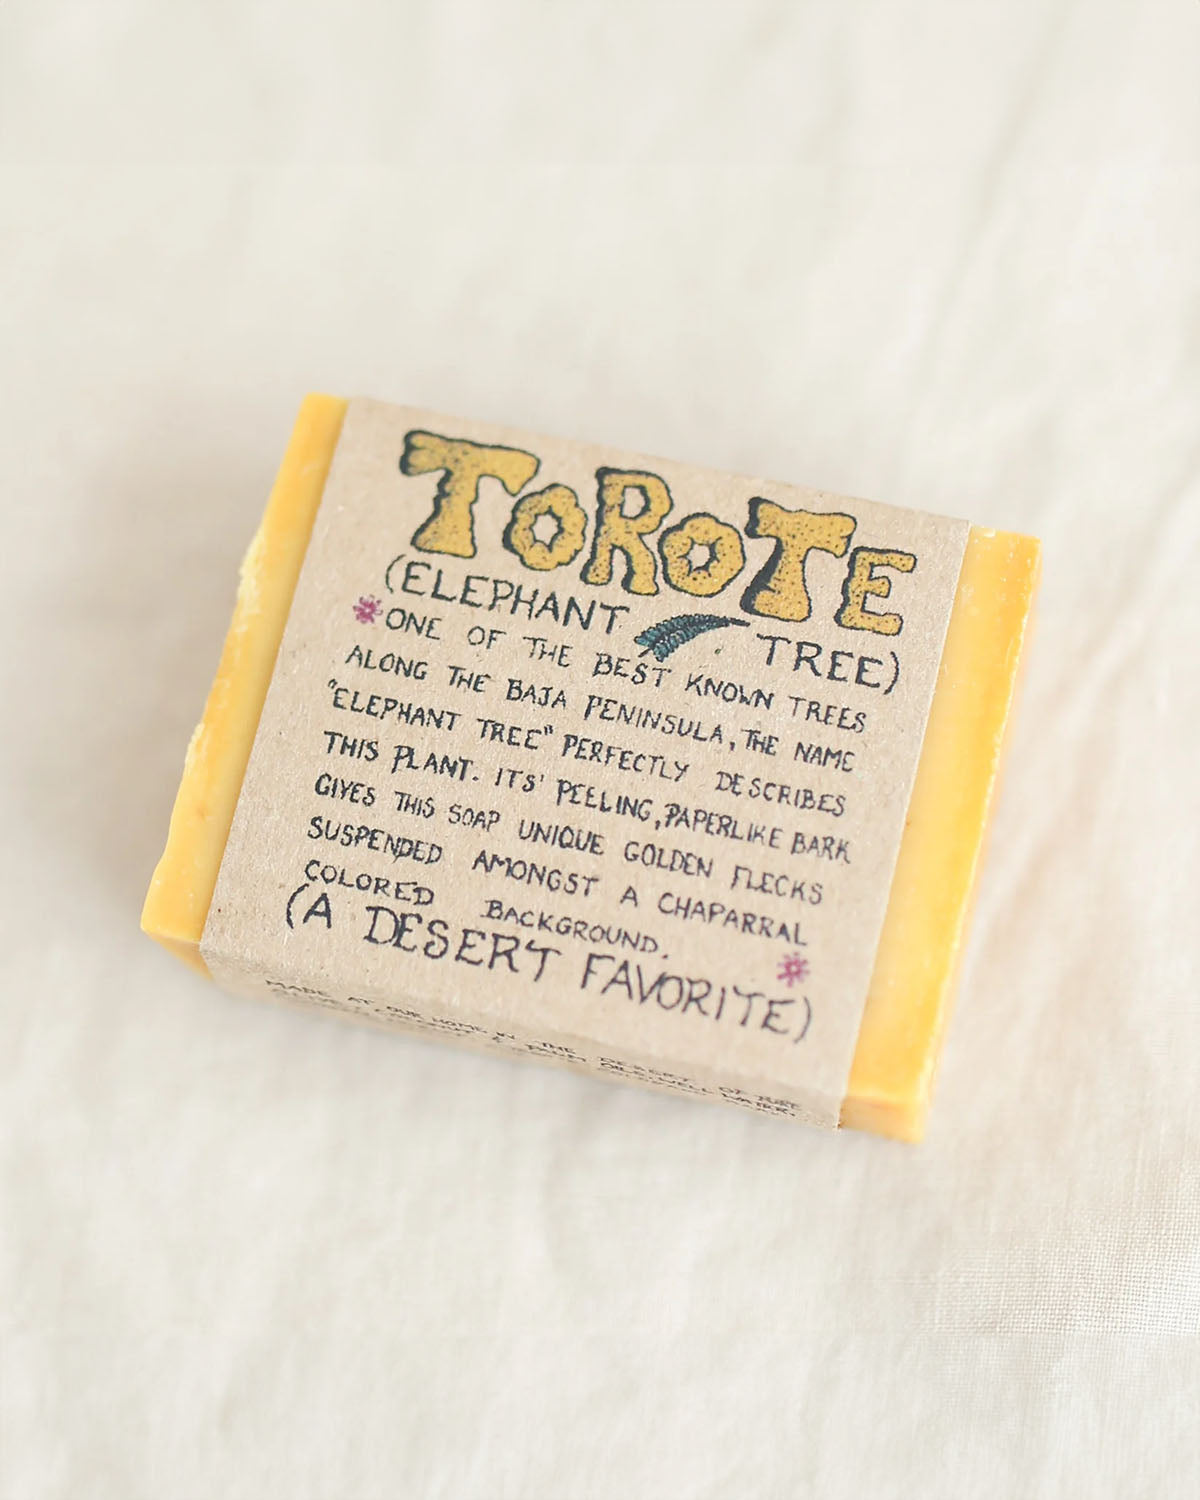 TOROTE
(ELEPHANT TREE)
ONE OF THE BEST KNOWN TREES
ALONG THE BAJA PENINSULA, THE NAME
"ELEPHANT TREE" PERFECTLY DESCRIBES
THIS PLANT. ITS' PEELING, PAPERLIKE BARK
GIVES THIS SOAP UNIQUE GOLDEN FLECKS
SUSPENDED AMONGST A CHAPARRAL
COLORED BACKGROUND.
(A DESERT FAVORITE)
MADE AT OUR HOME IN THE DESERT OF